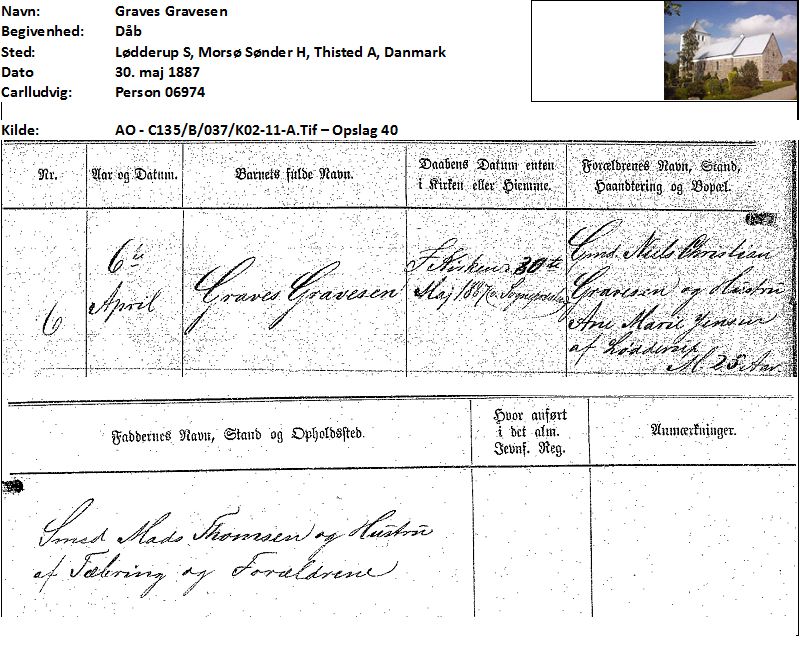 Navn: Graves Gravesen
Begivenhed: Dåb
Sted: Lødderup S, Morsø Sønder H, Thisted A, Danmark
Dato 30. maj 1887
Carlludvig: Person 06974
Kilde: AO - C135/B/037/K02-11-A.Tif – Opslag 40
Nr.
Aar og Datum.
Barnets fulde Navn.
Daabens Datum enten
i Kirken eller Hjemme.
Forældrenes Navn, Stand,
Haandtering og Bopæl.
6
6te
April
Graves Gravesen
I Kirken 30te
Maj 1887 Sognepræsten
Gmd. Niels Christian
Gravesen og Hustru
Ane Marie Jensen
af Lødderup
M. 25 Aar
Faddernes Navn, Stand og Opholdssted.
Hvor anført
i det alm.
Jevnf. Reg.
Anmærkninger.
Smed Mads Thomsen og Hustru
af Tæbring og Forældrene